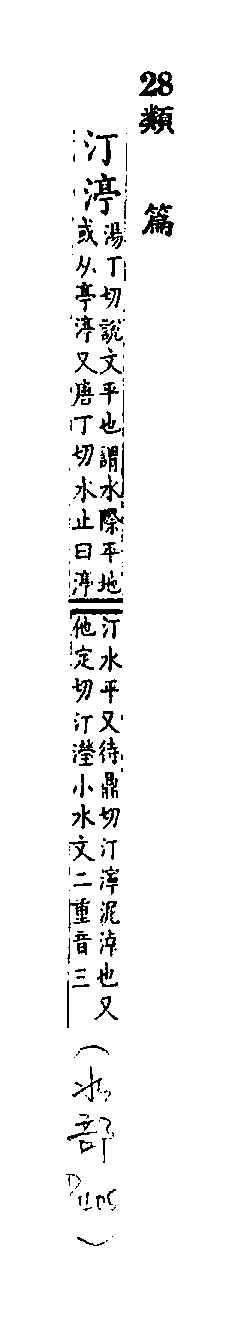 28
類篇
汀渟
湯丁切說文平也謂水際平地
或从亭渟又唐丁切水止曰渟
汀水平又待鼎切汀濘泥淖也又
他定切汀瀅小水文二重音三
(水部
P1105
)